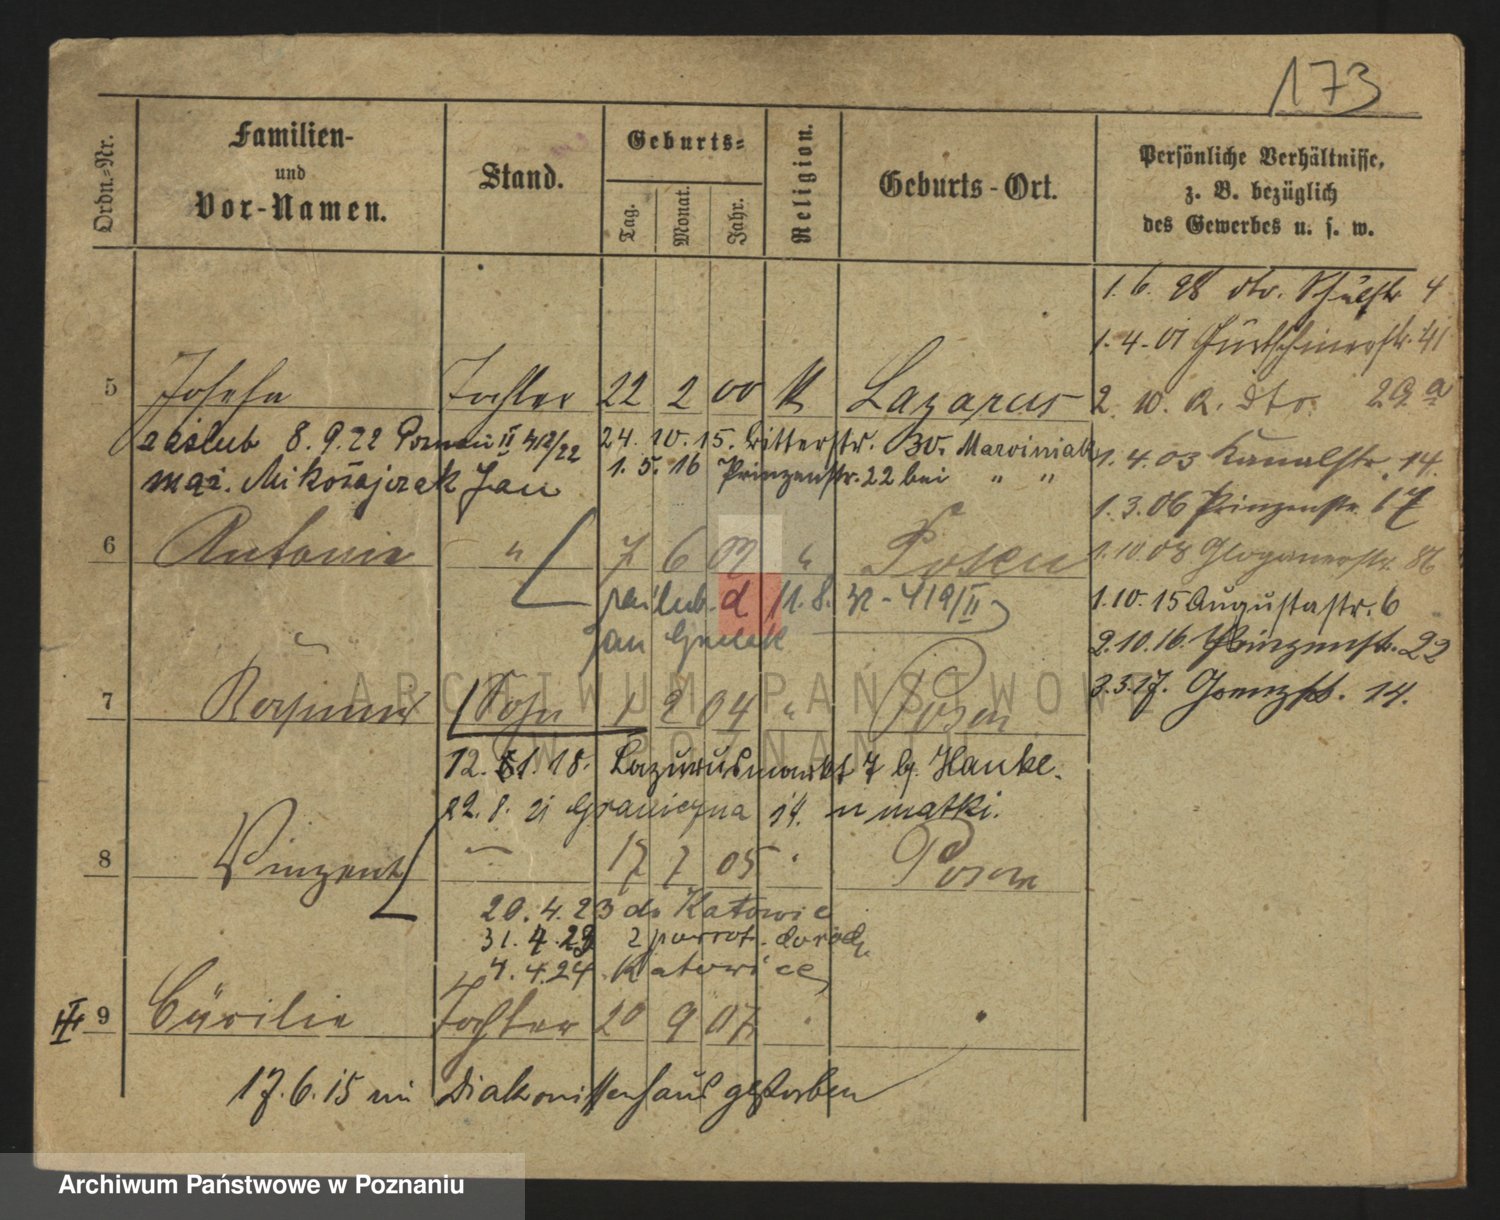 173
Ordn.-Nr.
Familien-
und
Vor-Namen.
Stand.
Geburts-
Tag.
Monat.
Jahr.
Religion.
Geburts-Ort.
Persönliche Verhältnisse,
z. B. bezüglich
des Gewerbes u. s. w.
1. 6. 98 dto. Schulstr. 4
1. 4. 01 41
5 Josefa Tochter 22 2 00 K Lazarus
2. 10. 02. dto. 29 a
zaślub 8. 9. 22 Poznań II 412/22
24. 10. 15. Ritterstr. 30. Marciniak
1. 4. 03 Kanalstr. 14.
maż. Mikołajczak Jan
1. 5. 16 Prinzenstr. 22 bei " "
1. 3. 06 Prinzenstr. 17
6 Antonie " 7 6 02 " Posen
1. 10. 08 Glogauerstr. 86
zaślub. d 11. 8. 32 - 419/II
1. 10. 15 Augustastr. 6
Jan
2. 10. 16. Prinzenstr. 22
7 Sohn 1 2 04 " Posen
3. 3. 17. Grenzstr. 14.
12. 1. 18. Lazarusmarkt 7 b. Hanke.
22. 8. 21 Graniczna 14. u matki.
8 Vinzent 17 7 05 Posen
20. 4. 23 do Katowic
31. 4. 23 z powrot.
4. 4. 24 Katowice
III 9 Cäcilie Tochter 20 9 07
17. 6. 15 im Diakonissenhaus gestorben
ARCHIWUM PAŃSTWOWE
W POZNANIU
Archiwum Państwowe w Poznaniu